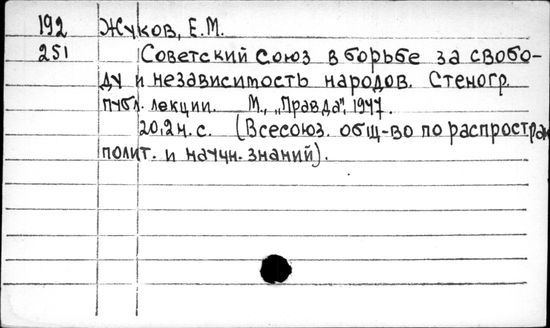 192 Жуков, Е.М.
251 Советский Союз в борьбе за свобо-
ду и независимость народов. Стеногр.
публ. лекции. М., „Правда", 1947.
20,2 н. с. (Всесоюз. общ-во по распростран
полит. и научн. знаний).